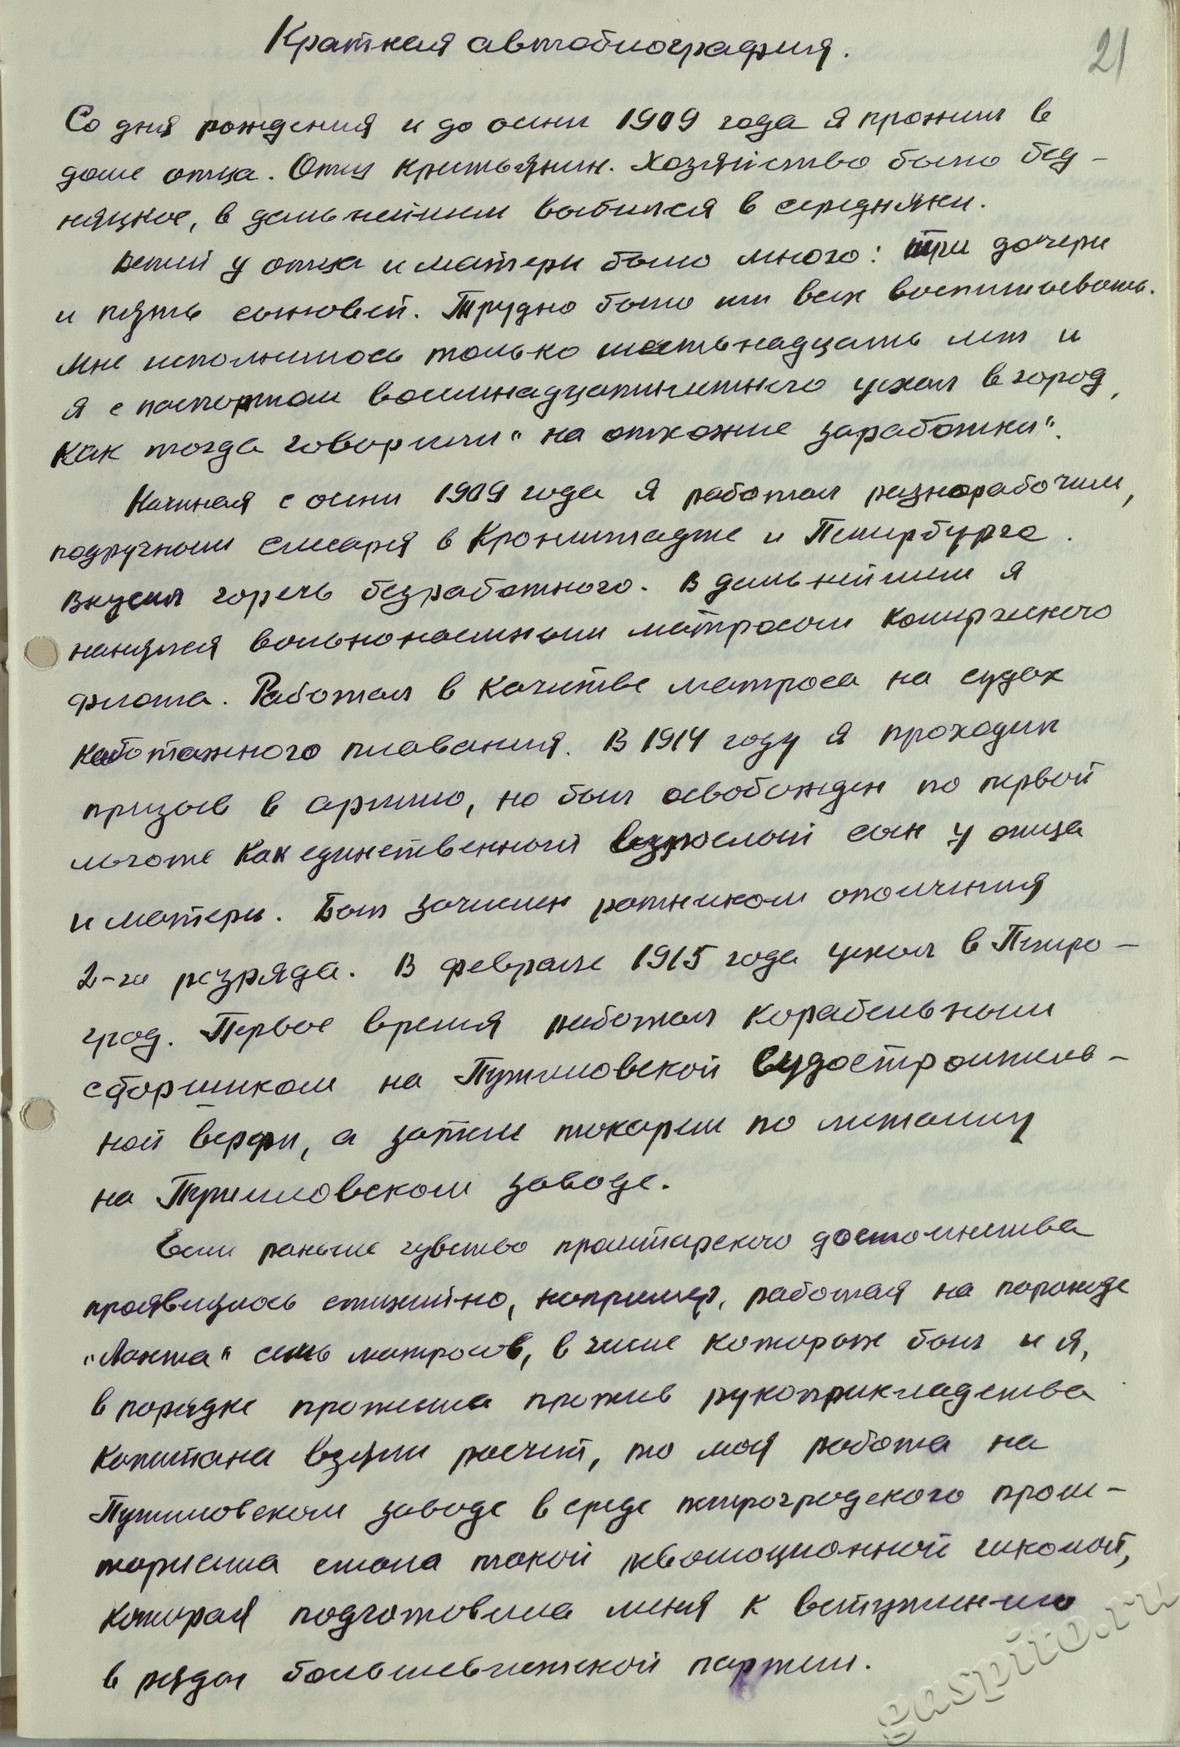 21
Краткая автобиография.
Со дня рождения и до осени 1909 года я прожил в
доме отца. Отец крестьянин. Хозяйство было бед-
няцкое, в дальнейшем выбился в середняки.
Детей у отца и матери было много: три дочери
и пять сыновей. Трудно было им всех воспитывать.
Мне исполнилось только шестьнадцать лет и
я с паспортом восемнадцатилетнего уехал в город,
как тогда говорили "на отхожие заработки".
Начиная с осени 1909 года я работал разнорабочим,
подручным слесаря в Кронштадте и Петербурге.
Вкусил горечь безработного. В дальнейшем я
нанялся вольнонаемным матросом комерческого
флота. Работал в качестве матроса на судах
каботажного плавания. В 1914 году я проходил
призыв в армию, но был освобожден по первой
льготе как единственный взрослый сын у отца
и матери. Был зачислен ратником ополчения
2-го разряда. В феврале 1915 года уехал в Петро-
град. Первое время работал корабельным
сборщиком на Путиловской судостроитель-
ной верфи, а затем токарем по металлу
на Путиловском заводе.
Если раньше чувство пролетарского достоинства
проявлялось стихийно, например, работая на пароходе
"Лахта" семь матросов, в числе которых был и я,
в порядке протеста против рукоприкладства
капитана взяли расчет, то моя работа на
Путиловском заводе в среде петроградского проле-
тариата стала такой революционной школой,
которая подготовила меня к вступлению
в ряды большевистской партии.
gaspito.ru